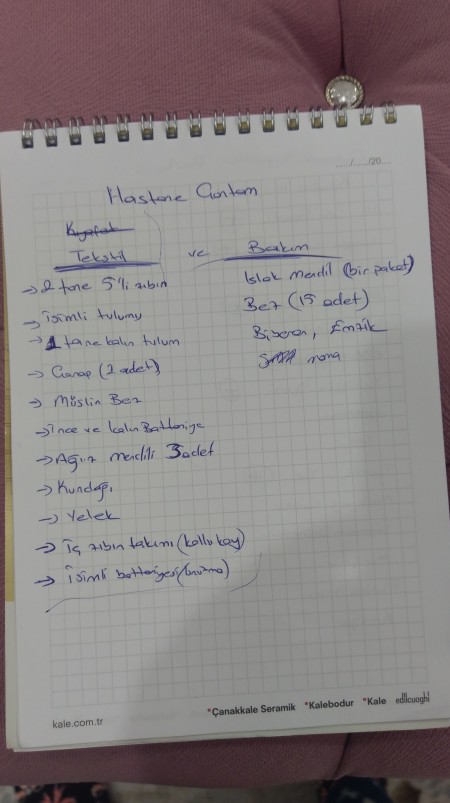 ..../..../20....
Hastane Çantam
Kıyafet
Tekstil ve Bakım
→ 2 tane 5'li zıbın
→ İsimli tulumu
→ 1 tane kalın tulum
→ Çorap (2 adet)
→ Müslin Bez
→ İnce ve kalın Battaniye
→ Ağız mendili 3 adet
→ Kundağı
→ Yelek
→ İç zıbın takımı (kollu koy)
→ İsimli battaniyesi (unutma)
Islak mendil (bir paket)
Bez (15 adet)
Biberon, Emzik
kale.com.tr
*Çanakkale Seramik *Kalebodur *Kale edilcuoghi